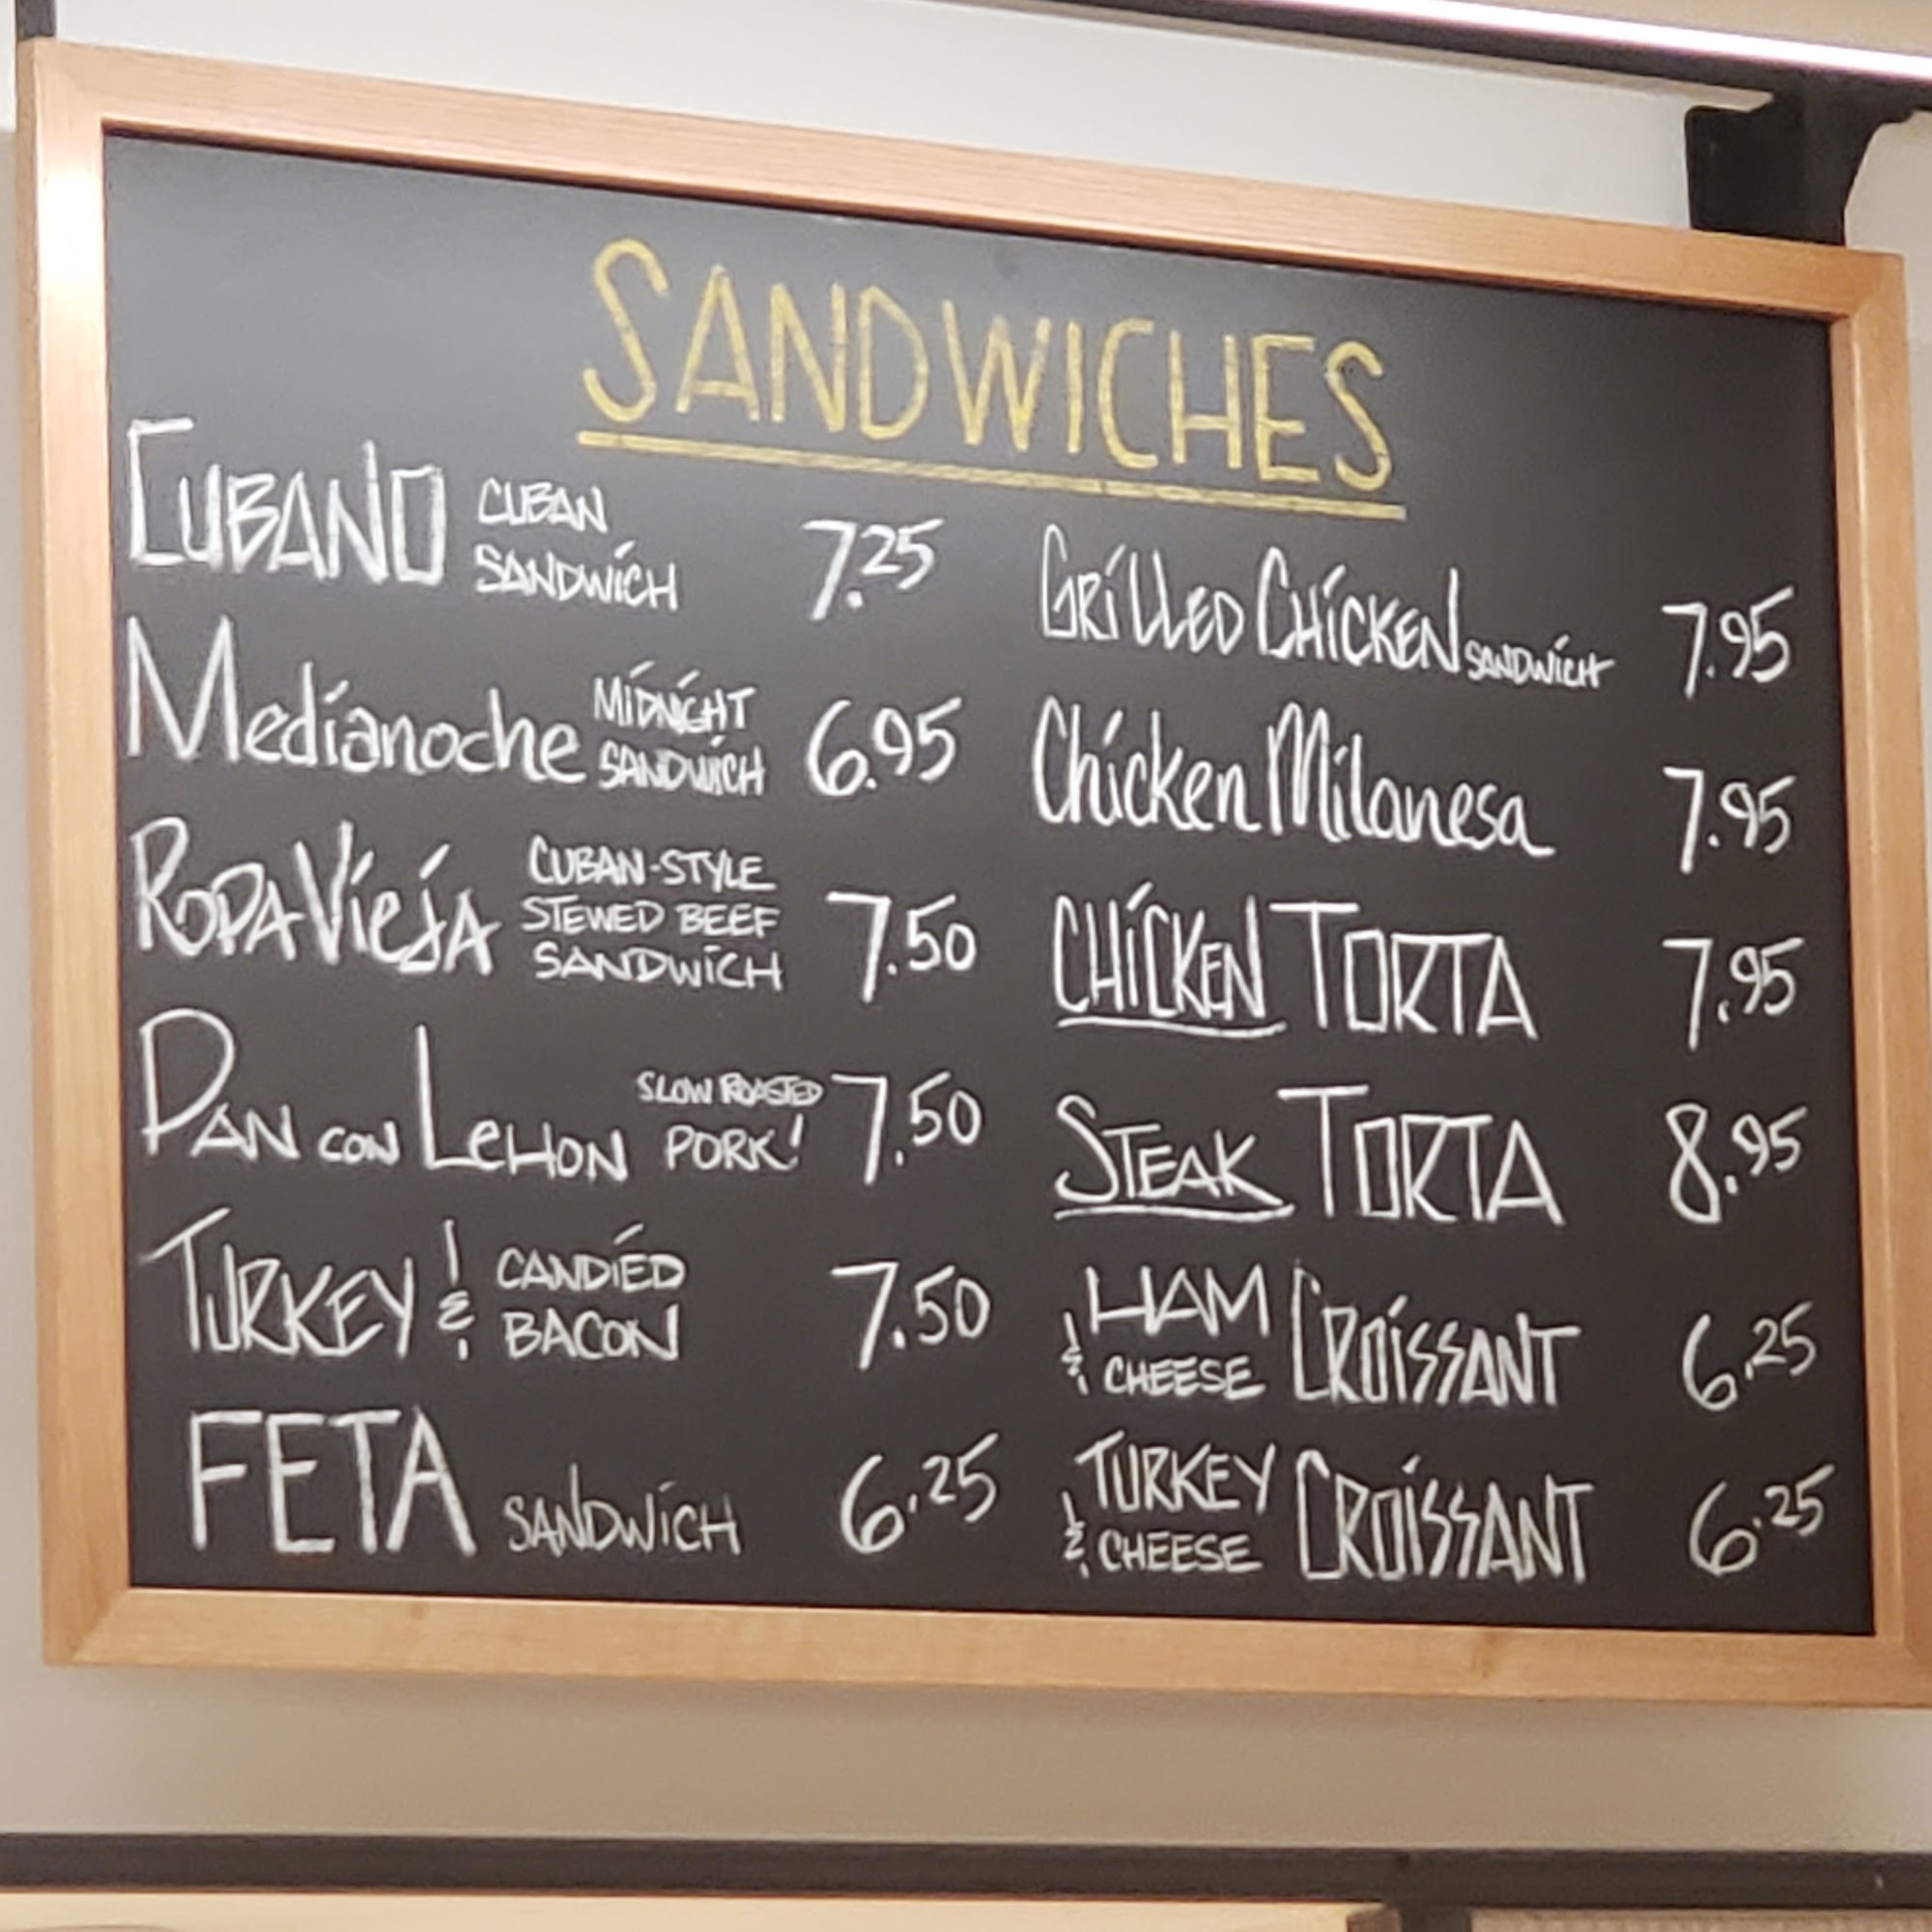 SANDWICHES
CUBANO CUBAN SANDWICH 7.25
Medianoche MIDNIGHT SANDWICH 6.95
ROPA VIEJA CUBAN-STYLE STEWED BEEF SANDWICH 7.50
PAN CON LEHON SLOW ROASTED PORK! 7.50
TURKEY & CANDIED BACON 7.50
FETA SANDWICH 6.25
GRILLED CHICKEN SANDWICH 7.95
Chicken Milanesa 7.95
CHICKEN TORTA 7.95
STEAK TORTA 8.95
HAM & CHEESE CROISSANT 6.25
TURKEY & CHEESE CROISSANT 6.25